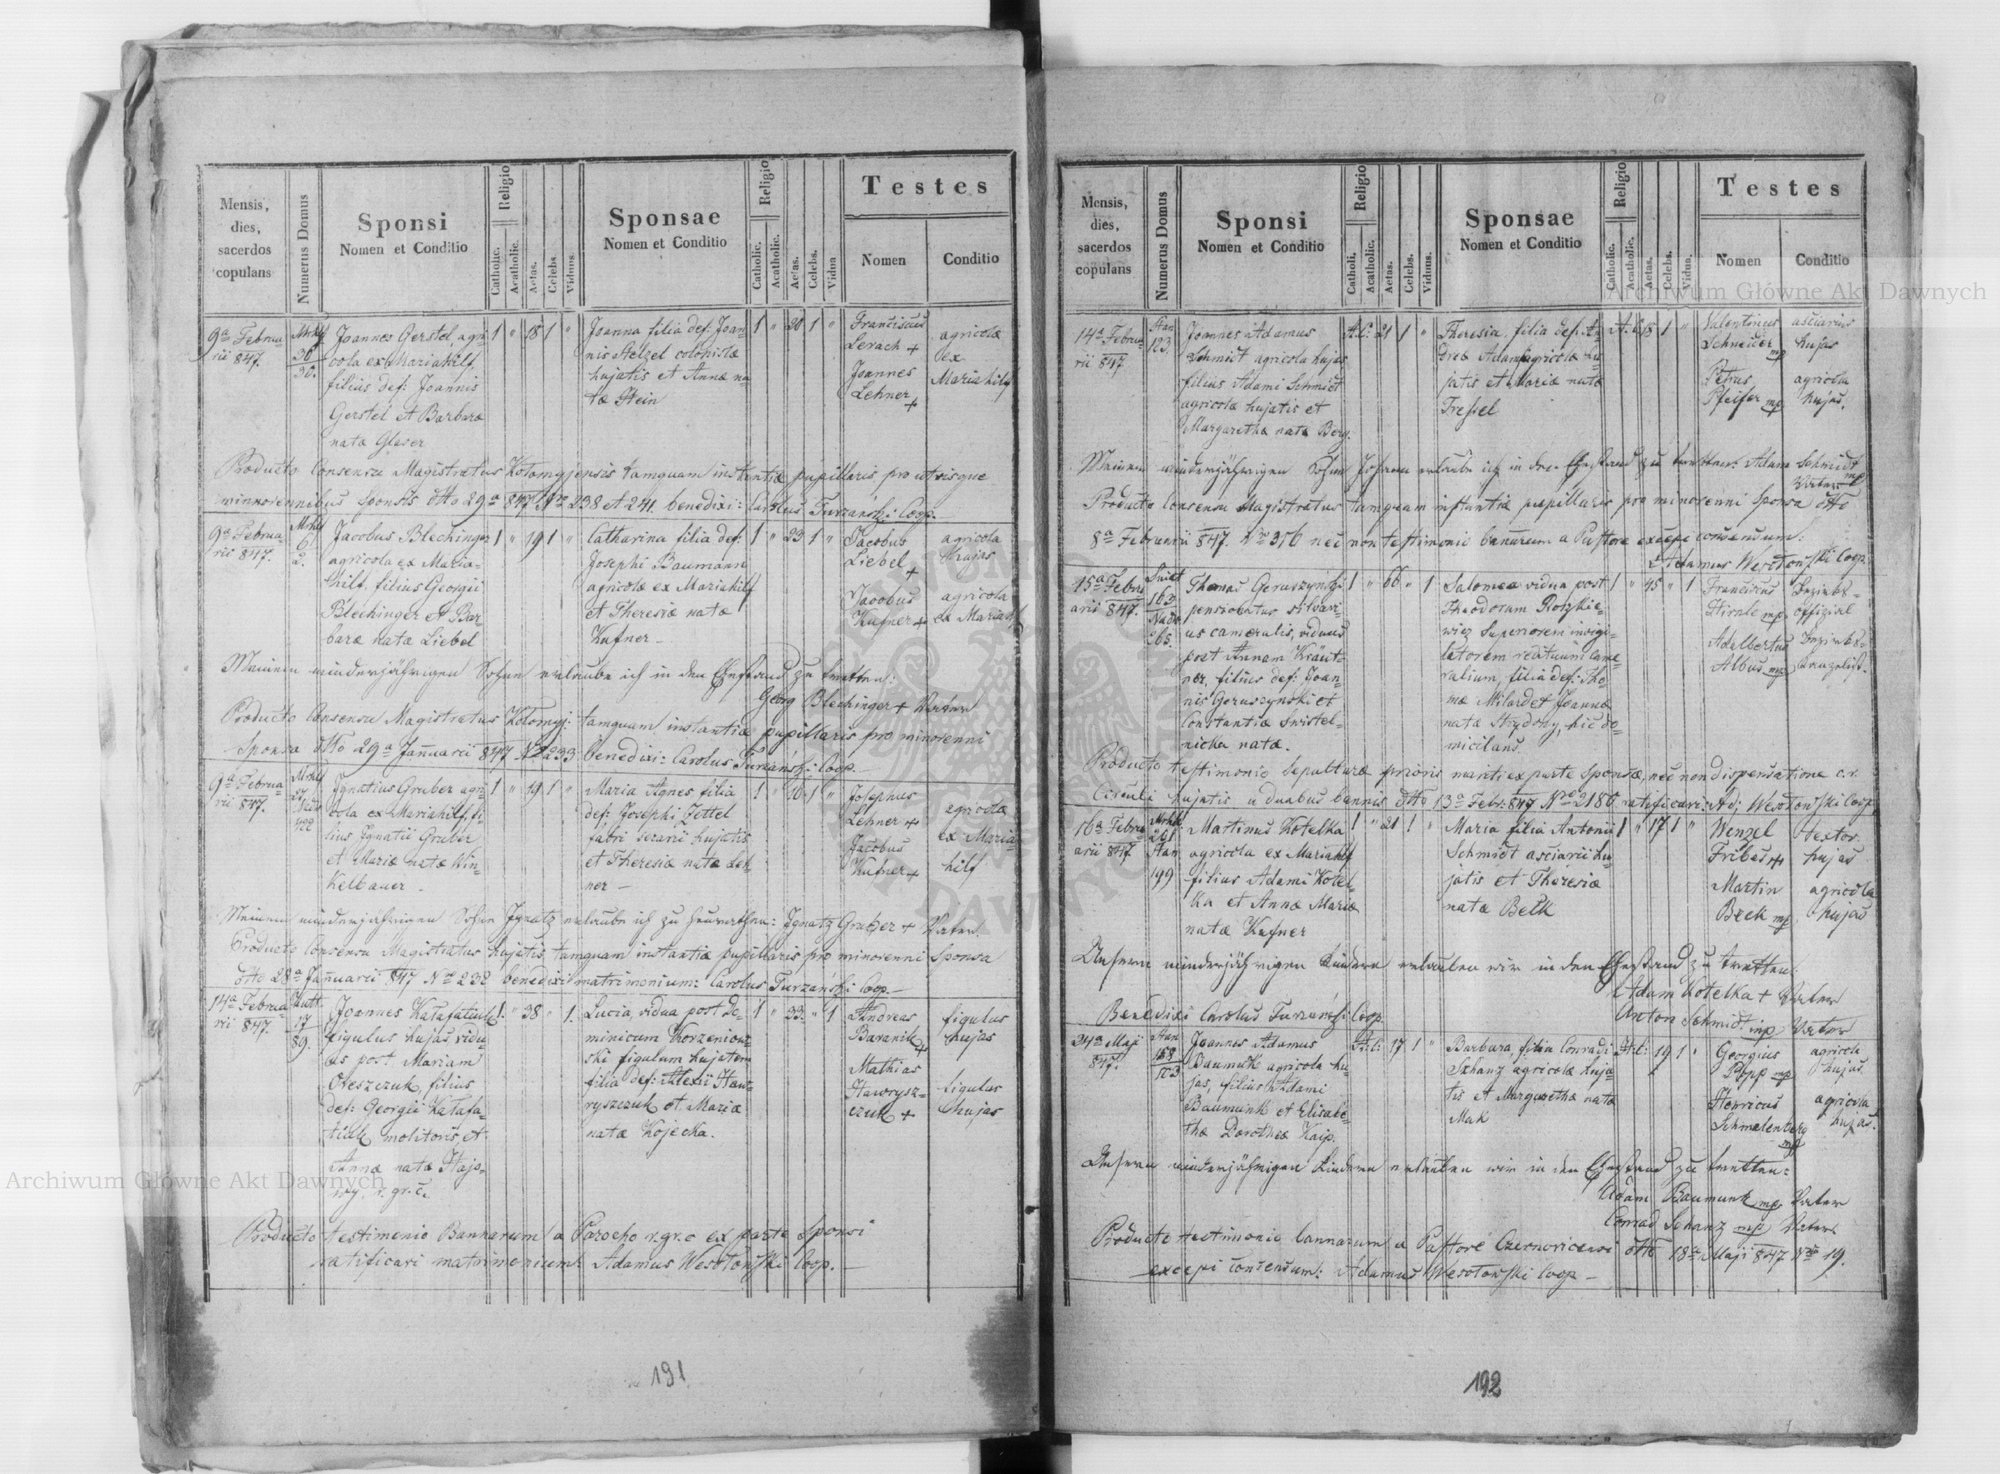 Mensis, dies, sacerdos copulans
Numerus Domus
Sponsi
Nomen et Conditio
Religio
Catholic.
Acatholic.
Aetas.
Celebs.
Viduus.
Sponsae
Nomen et Conditio
Religio
Catholic.
Acatholic.
Aetas.
Celebs.
Vidua
Testes
Nomen
Conditio
9a Februa=
rii 847.
30.
Joannes Gerstel, agri=
cola ex Mariahilf,
filius def: Joannis
Gerstel et Barbaræ
natæ Glaser
1 " 18 1 "
Joanna filia def: Joan=
nis Stelzel colonistæ
hujatis et Annæ na
tæ Stein
1 " 20 1 "
Franciscus
Lerach +
Joannes
Lehner +
agricolæ
ex
Mariahilf
Producto Consensu Magistratus Kolomyjensis tamquam instantiæ pupillaris pro utrisque
minorennibus sponsis dtto 29a 847 Nro 238 et 241. benedixi: Carolus Turzański Coop.
9a Februa=
rii 847.
Jacobus Blechinger
agricola ex Maria=
hilf, filius Georgii
Blechinger et Bar
baræ natæ Liebel
1 " 19 1 "
Catharina filia def:
Josephi Baumann
agricolæ ex Mariahilf
et Theresiæ natæ
Kufner
1 " 23 1 "
Jacobus
Liebel +
Jacobus
Kufner +
agricola
hujas
agricola
ex Mariahilf
Meinem minderjährigen Sohne erlaube ich in den Ehestand zu tretten:
Georg Blechinger + Vater
Producto Consensu Magistratus Kolomyj: tamquam instantiæ pupillaris pro minorenni
Sponsa dtto 29a Januarii 847 No 233 benedixi: Carolus Turzański Coop.
9a Februa=
rii 847.
Ignatius Gruber agri=
cola ex Mariahilf, fi
lius Ignatii Gruber
et Mariæ natæ Win=
kelbauer
1 " 19 1 "
Maria Agnes filia
def: Josephi Zettel
fabri serarii hujatis
et Theresiæ natæ Leh=
ner
Josephus
Lehner +
Jacobus
Kufner +
agricolæ
ex Maria=
hilf
Meinem minderjährigen Sohne Ignatz erlaube ich zu heurathen: Ignatz Gruber + Vater.
Producto Consensu Magistratus hujatis, tamquam instantiæ pupillaris pro minorenni Sponsa
dtto 28a Januarii 847 No 232 benedixi matrimonium: Carolus Turzański Coop.
14a Februa
rii 847.
17
89.
Joannes Katafatiuk
figulus hujas vidu
us post Mariam
Oleszczuk, filius
def: Georgii Katafa=
tiuk molitoris, et
Annæ natæ Hajo=
wy, r. gr. c.
1. " 38 " 1.
Lucia, vidua post Do=
minicum Korzeniow=
ski figulum hujatem
filia def: Alexii Haw=
ryszczuk et Mariæ
natæ Kojecka.
1 " 33. " 1
Andreas
Baranik +
Mathias
Hawrysz=
czuk +
figulus
hujas
figulus
hujas
Producto testimonio Bannarum a Parocho r. gr. c ex parte Sponsi
ratificavi matrimonium: Adamus Wesołowski Coop.
191
Mensis, dies, sacerdos copulans
Numerus Domus
Sponsi
Nomen et Conditio
Religio
Catholi.
Acatholic.
Aetas.
Celebs.
Viduus.
Sponsae
Nomen et Conditio
Religio
Catholic.
Acatholic.
Aetas.
Celebs.
Vidua.
Testes
Nomen
Conditio
14a Febru=
rii 847
123.
Joannes Adamus
Schmidt agricola hujas
filius Adami Schmidt
agricolæ hujatis et
Margarethæ natæ Berg.
A.C. 21 1 "
Theresia, filia def: An=
dreæ Adam agricolæ hu
jatis et Mariæ natæ
Tressel
A.C. 18 1 "
Valentinus
Schneider mp
Petrus
Pfeifer mp
asciarius
hujas
agricola
hujas.
Meinem minderjährigen Sohne Johann erlaube ich in den Ehestand zu tretten: Adam Schmidt mp
Vater
Producto Consensu Magistratus tamquam instantiæ pupillaris pro minorenni Sponsa dtto
8a Februarii 847. Nro 376 nec non testimonii bannarum a Pastore excepi consensum:
Adamus Wesołowski Coop.
15a Febru
arii 847.
163
Thomas Goruszyński
pensionatus silvari=
us cameralis, viduus
post Annam Kräut=
ner, filius def: Joan=
nis Goruszynski et
Constantiæ Swistel=
nicka natæ.
1 " 66 " 1
Salomea vidua post
Theodorum
wicz Superiorem invigi=
latorem redituum Came=
ralium, filia def: Tho=
mæ Milard et Joannæ
natæ Strydony, hic do
micilans.
1 " 45 " 1
Franciscus
mp
Adalbertus
Albus mp
Meinen
Producto testimonio Sepulturæ prioris mariti ex parte Sponsæ, nec non dispensatione c. r.
Circuli hujatis a duabus bannis dtto 13a Febr: 847 No 2186 ratificavi: Ad: Wesołowski Coop
16a Febru
arii 847.
199
Martinus Kotelka
agricola ex Mariahilf
filius Adami Kotel=
ka et Annæ Mariæ
natæ Kufner
1 " 21 1 "
Maria filia Antonii
Schmidt asciarii hu
jatis et Theresiæ
natæ Belk
1 " 17 1 "
Wenzel
Martin
Beck mp
textor
hujas
agricola
hujas
Unseren minderjährigen Kindern erlauben wir in den Ehestand zu tretten:
Adam Kotelka + Vater
Anton Schmidt mp Vater
Benedixi Carolus Turzański Coop.
24a Maji
847.
Joannes Adamus
Baumunk agricola hu=
jas, filius Adami
Baumunk et Elisabe=
thæ Dorotheæ Kaip.
A.C: 17 1 "
Barbara, filia Conradi
Schanz agricolæ huja=
tis et Margarethæ natæ
Mak
A.C: 19 1 "
Georgius
Popp mp
Henricus
Schmalenberg
mp
agricola
hujas
agricola
hujas.
Unseren minderjährigen Kindern erlauben wir in den Ehestand zu tretten:
Adam Baumunk mp Vater
Conrad Schanz mp Vater
Producto testimonio bannarum a Pastore Czernovicensi dtto 18a Maji 847. Nro 19.
excepi consensum: Adamus Wesołowski Coop
192
Archiwum Główne Akt Dawnych
Archiwum Główne Akt Dawnych